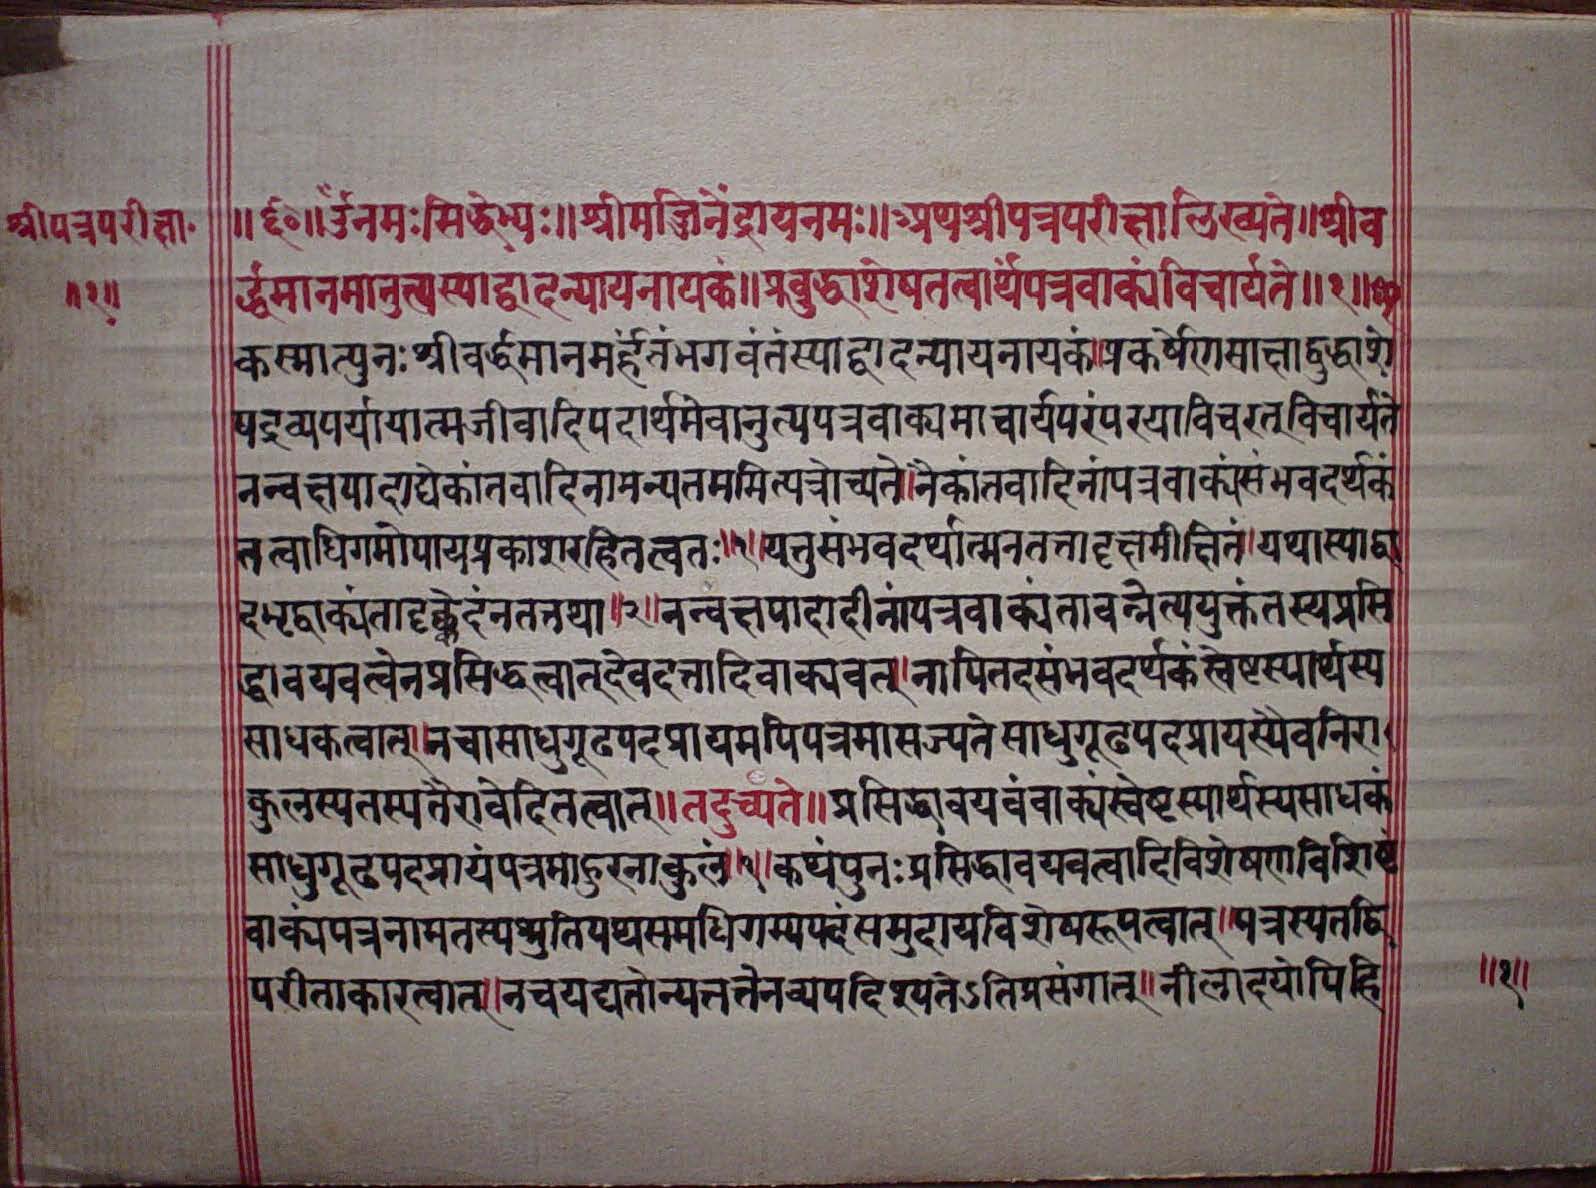 श्रीपत्रपरीक्षा॰
॥१॥
॥ र्द्द॰॥ ॐनमःसिद्धेभ्यः॥श्रीमज्जिनेंद्रायनमः॥अथश्रीपत्रपरीक्षालिख्यते॥श्रीव
र्द्धमानमानुत्यस्याद्वादन्यायनायकं॥प्रबुद्धाशेषतत्वार्थंपत्रवाक्यंविचार्यते॥१॥
कस्मात्पुनःश्रीवर्द्धमानमर्हंतंभगवंतंस्याद्वादन्यायनायकं।प्रकर्षेणसाक्षाद्बुद्धाशे
षद्रव्यपर्यायात्मजीवादिपदार्थमेवानुत्यपत्रवाक्यमाचार्यपरंपरयाविचरत्विचार्यते
नन्वक्षपादाद्येकांतवादिनामन्यतममित्यत्रोच्यते।नैकांतवादिनांपत्रवाक्यंसंभवदर्थकं
तत्वाधिगमोपायप्रकाशरहितत्वतः॥१॥यत्तुसंभवदर्थात्मनतत्तादृक्षमीक्षितं।यथास्याद्वा
दभृद्वाक्यंतादृक्चेदंनतत्तथा॥२॥नन्वक्षपादादीनांपत्रवाक्यंतावन्नैत्ययुक्तंतस्यप्रसि
द्धावयवत्वेनप्रसिद्धत्वात्देवदत्तादिवाक्यवत्।नापितदसंभवदर्थकंस्वेष्टस्यार्थस्य
साधकत्वात्।नचासाधुगूढपदप्रायमपिपत्रमासज्यतेसाधुगूढपदप्रायस्यैवनिरा
कुलस्यतस्यतैरावेदितत्वात्॥तदुच्यते॥प्रसिद्धावयवंवाक्यंस्वेष्टस्यार्थस्यसाधकं
साधुगूढपदप्रायंपत्रमाहुरनाकुलं॥१॥कथंपुनःप्रसिद्धावयवत्वादिविशेषणविशिष्टं
वाक्यंपत्रनामतस्यश्रुतिपथसमधिगम्यपदसमुदायविशेषरूपत्वात्।पत्रस्यतद्वि
परीताकारत्वात्।नचयद्यतोन्यत्तत्तेनव्यपदिश्यतेऽतिप्रसंगात्॥नीलादयोपिहि
॥१॥